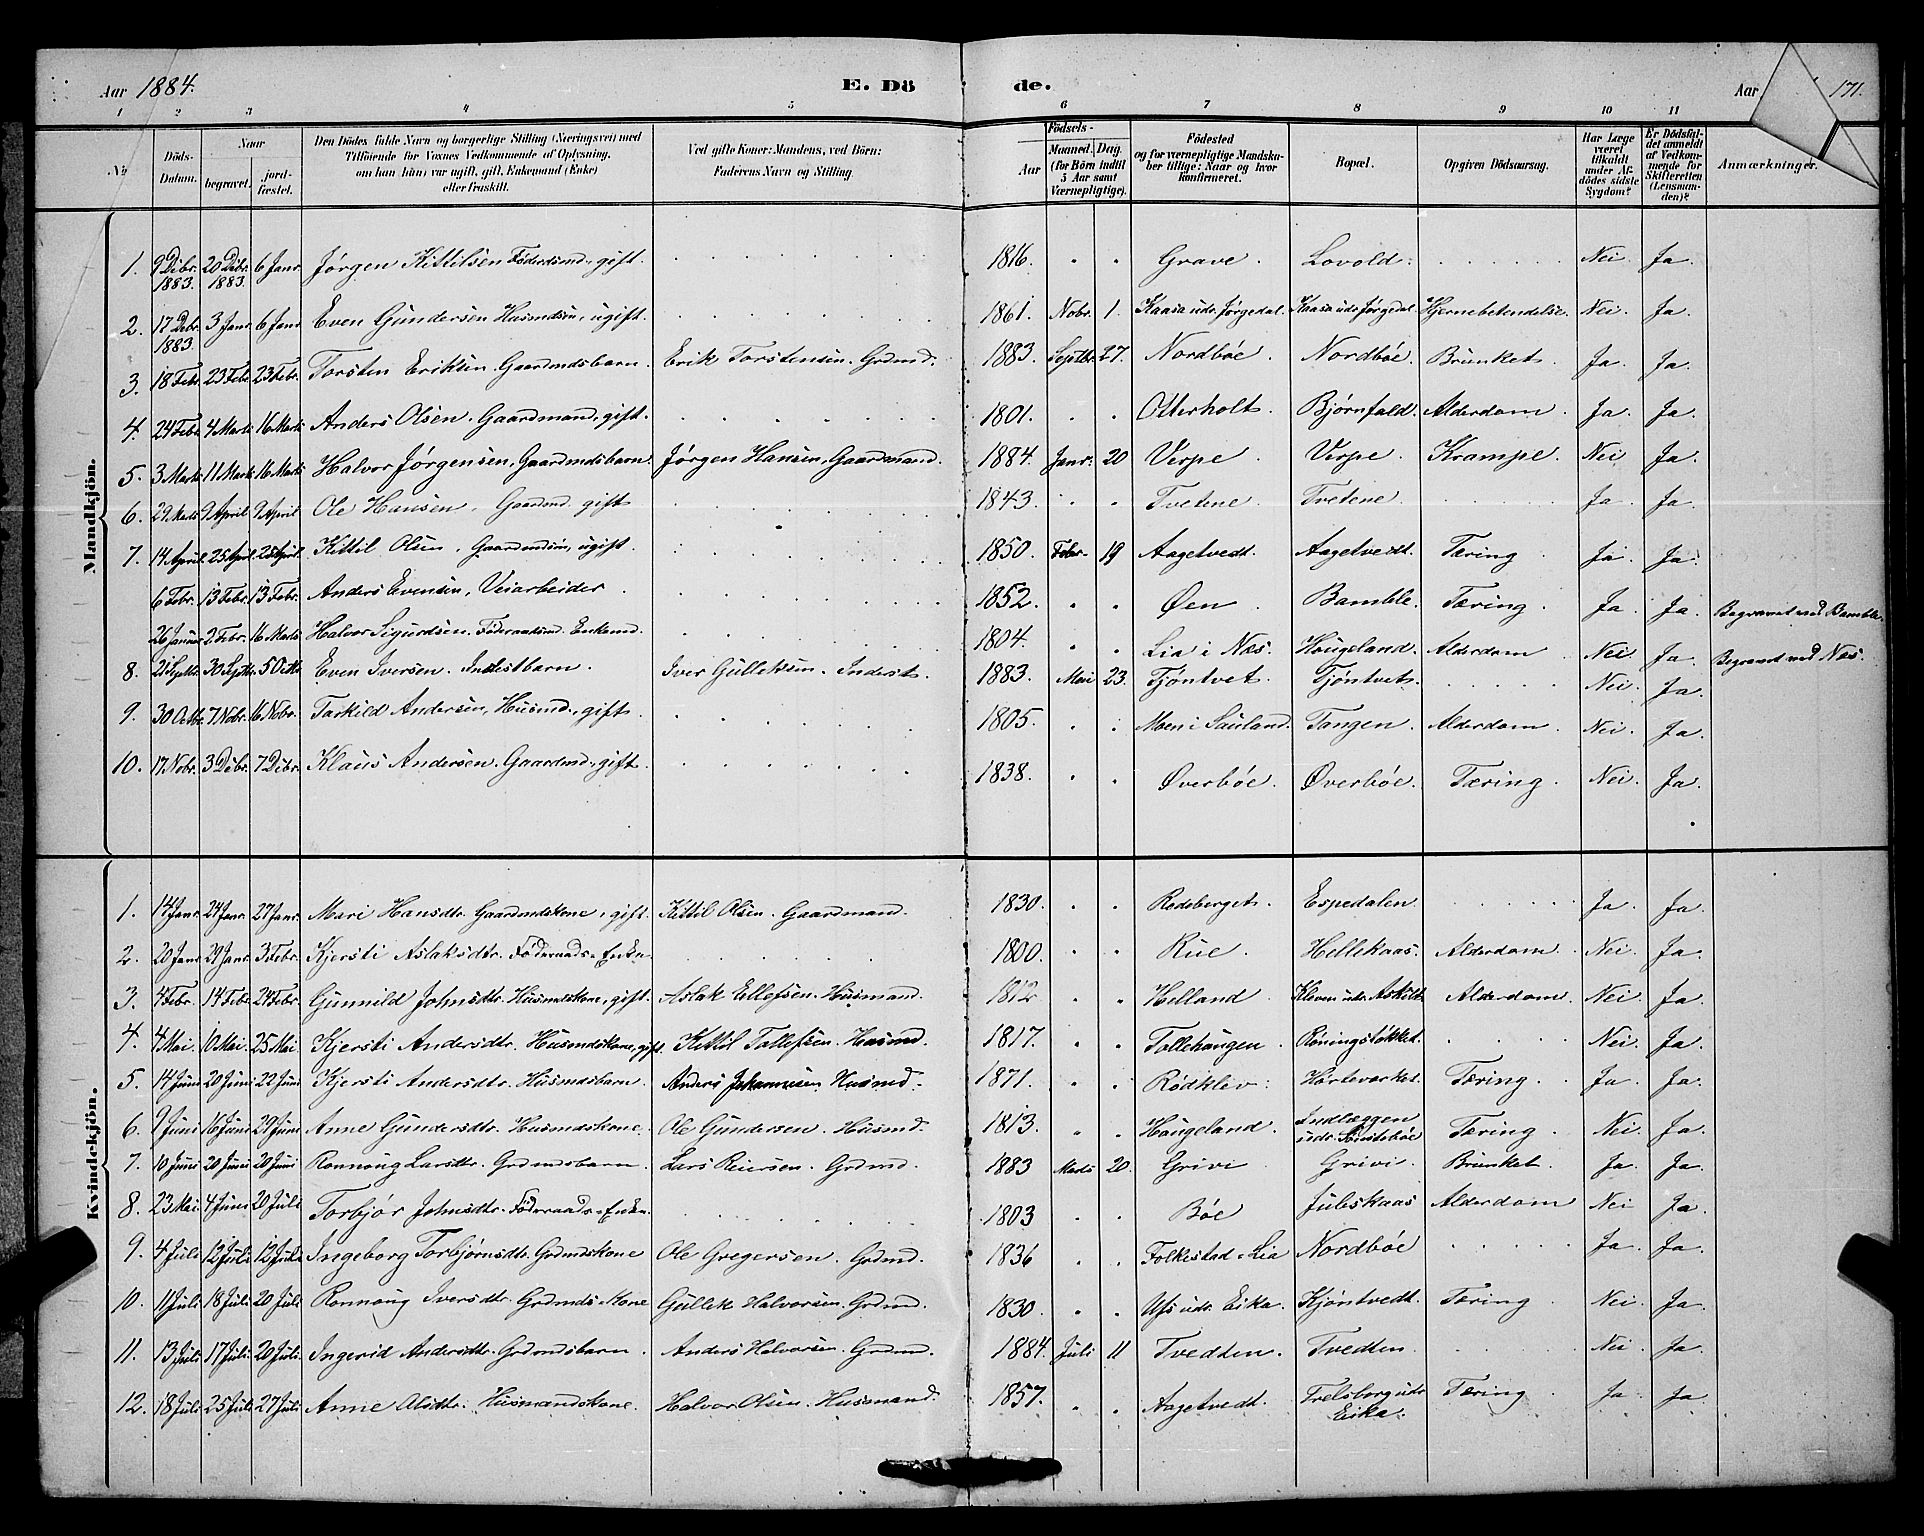 Aar 1884. E. Dö de. Aar 171.
1 2 3 4 5 6 7 8 9 10 11
№ Döds-Datum. Naar begravet. jord-fæstet. Den Dödes fulde Navn og borgerlige Stilling (Næringsvei) med Tilföiende for Voxnes Vedkommende af Oplysning, om han (hun) var ugift, gift, Enkemand (Enke) eller fraskilt. Ved gifte Koner: Mandens, ved Börn: Faderens Navn og Stilling. Födsels- Aar Maaned. Dag. (for Börn indtil 5 Aar samt Værnepligtige). Födested og for værnepligtige Mandskaber tillige: Naar og hvor konfirmeret. Bopæl. Opgiven Dödsaarsag. Har Læge været tilkaldt under Afdödes sidste Sygdom? Er Dödsfaldet anmeldt af Vedkommende for Skifteretten (Lensmanden)? Anmærkninger.
Mandkjön.
1. 9 Debr. 1883. 20 Debr. 1883. 6 Janr. Jørgen Kittilsen Föderdsmd., gift. 1816. Grave. Lovold. Nei. Ja.
2. 17 Debr. 1883. 3 Janr. 6 Janr. Even Gundersen Husmdsön, ugift. 1861. Nobr. 1. Kaasa udr. Jørgedal. Kaasa udr. Jørgedal. Hjernebetendelse. Nei. Ja.
3. 18 Febr. 23 Febr. 23 Febr. Torsten Eriksen. Gaardmdsbarn. Erik Torstensen. Grdmd. 1883. Septbr. 27. Nordbøe. Nordbøe. Brunket. Ja. Ja.
4. 24 Febr. 4 Marts 16 Marts Anders Olsen. Gaardmand, gift. 1801. Otterholt. Bjørnfald. Alderdom. Ja. Ja.
5. 3 Marts 11 Marts 16 Marts Halvor Jørgensen, Gaardmdsbarn. Jørgen Hansen, Gaardmand. 1884. Janr. 20 Verpe. Verpe. Krampe. Nei. Ja.
6. 29 Marts 9 April 9 April Ole Hansen, Gaardmd. gift 1843. Tvetene. Tvetene. Ja. Ja.
7. 14 April. 25 April. 25 April. Kittil Olsen, Gaardmdsön, ugift. 1850. Febr. 19 Aagetvedt. Aagetvedt. Tæring. Ja. Ja.
6 Febr. 13 Febr. 13 Febr. Anders Evensen, Veiarbeider. 1852. Øen. Bamble. Tæring. Ja. Ja. Begravet ved Bamble.
26 Januar 2 Febr. 16 Marts Halvor Sigurdsen. Föderaadsmd. Enkemd. 1804. Lia i Næs. Haugeland. Alderdom Nei. Ja. Begravet ved Næs.
8. 21 Septbr. 30 Septbr. 5 Octbr. Even Iversen. Inderstbarn. Iver Gulleksen. Inderst. 1883. Mai 23. Tjöntvet. Tjöntvet. Nei. Ja.
9. 30 Octbr. 7 Nobr. 16 Nobr. Tarkild Andersen, Husmd., gift. 1805. Moen i Sauland. Tangen. Alderdom. Nei. Ja.
10. 17 Nobr. 3 Debr. 7 Debr. Klaus Andersen. Gaardmd., gift. 1838. Øverbøe. Øverbøe. Tæring. Nei. Ja.
Kvindekjön.
1. 14 Janr. 24 Janr. 27 Janr. Mari Hansdtr. Gaardmdskone, gift. Kittil Olsen. Gaardmand. 1830. Rodeberget. Espedalen. Ja. Ja.
2. 20 Janr. 29 Janr. 3 Febr. Kjersti Aslaksdtr. Föderaads-Enke. 1800. Rue. Hellekaas. Alderdom. Nei. Ja.
3. 4 Febr. 14 Febr. 24 Febr. Gunnild Johnsdtr. Husmdskone, gift. Aslak Ellefsen. Husmand. 1812 Helland. Kleven udr. Askildt Alderdom. Nei. Ja.
4. 4 Mai. 10 Mai. 25 Mai Kjersti Andersdtr. Husmdskone, gift. Kittil Tollefsen. Husmd. 1817. Tollehaugen. Røningstøkket. Nei. Ja.
5. 14 Juni 20 Juni 22 Juni Kjersti Andersdtr. Husmdsbarn. Anders Johannesen Husmd. 1871. Rødklev. Hørteverket. Tæring. Ja. Ja.
6. 9 Juni 16 Juni 29 Juni Anne Gundersdtr. Husmdskone. Ole Gundersen. Husmd. 1813. Haugeland. Indlæggen udr. Tæring. Nei. Ja.
7. 10 Juni 20 Juni 20 Juni Ronnoug Larsdtr. Grdmdsbarn. Lars Reiersen. Grdmd. 1883 Marts 20. Grivi Grivi. Brunket. Ja. Ja.
8. 23 Mai. 4 Juni 20 Juli Torbjør Johnsdtr. Föderaads-Enke. 1803 Bøe Juleskaas Alderdom Nei Ja.
9. 4 Juli 12 Juli 12 Juli Ingeborg Torbjørnsdtr. Grdmdskone Ole Gregersen. Grdmd. 1836 Folkestad-Lia Nordbøe Ja. Ja.
10. 11 Juli 18 Juli 20 Juli Ronnoug Iversdtr. Grdmds Kone Gullek Halvorsen. Grdmd. 1830. Ufs udr. Eika. Kjöntvedt. Tæring Nei. Ja.
11. 13 Juli 17 Juli 20 Juli. Ingerid Andersdtr. Grdmdsbarn. Anders Halvorsen. Grdmd. 1884. Juli 11 Tvedten. Tvedten Nei Ja.
12. 18 Juli 25 Juli 27 Juli Anne Olsdtr. Husmandskone. Halvor Olsen. Husmand 1857. Aagetvedt. Trelsborg udr Eika. Tæring Ja. Ja.